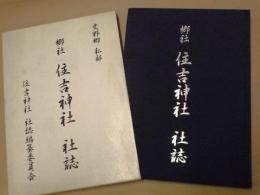 史野郷 払部
郷社 住吉神社 社誌
住吉神社 社誌編纂委員会
郷社 住吉神社 社誌